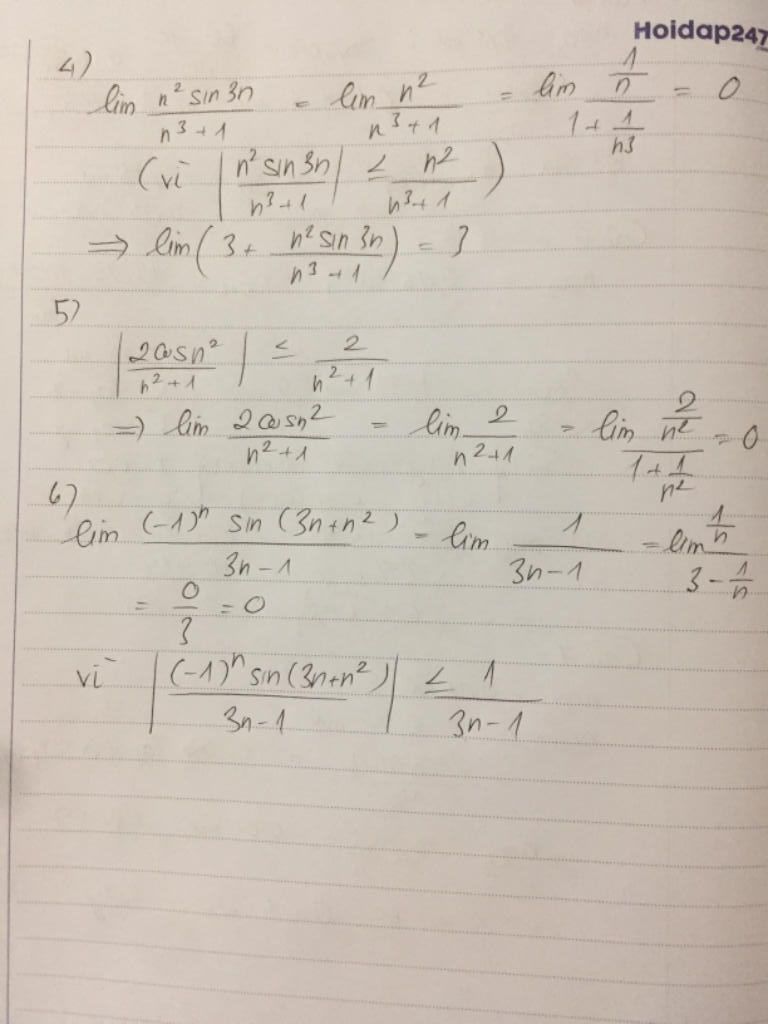 Hoidap247
4)
lim (n² sin 3n)/(n³ + 1) = lim n²/(n³ + 1) = lim (1/n)/(1 + 1/n³) = 0
(vì |(n² sin 3n)/(n³ + 1)| ≤ n²/(n³ + 1))
⇒ lim(3 + (n² sin 3n)/(n³ + 1)) = 3
5)
|(2cosn²)/(n² + 1)| ≤ 2/(n² + 1)
⇒ lim (2cosn²)/(n² + 1) = lim 2/(n² + 1) = lim (2/n²)/(1 + 1/n²) = 0
6)
lim ((-1)ⁿ sin (3n + n²))/(3n - 1) = lim 1/(3n - 1) = lim (1/n)/(3 - 1/n)
= 0/3 = 0
vì |((-1)ⁿ sin(3n + n²))/(3n - 1)| ≤ 1/(3n - 1)